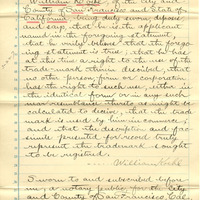 William Hoehl, of the city and
County of San Francisco and State of
California being duly sworn, deposes
and says that he is the applicant
named in the foregoing statement,
that he verily believes that the forego-
ing statement is true; that he has
at this time a right to the use of the
trade-mark therein described; that
no other person, firm or corporation
has the right to such use, either in
the identical form or in any such
near resemblance thereto as might be
calculated to deceive; that the trade
mark is used by him in commerce;
and that the description and fac-
simile presented for record truly
represent the trademark sought
to be registered.
William
Sworn to and subscribed before
me, a notary public for the City
and County of San Francisco, Cal.